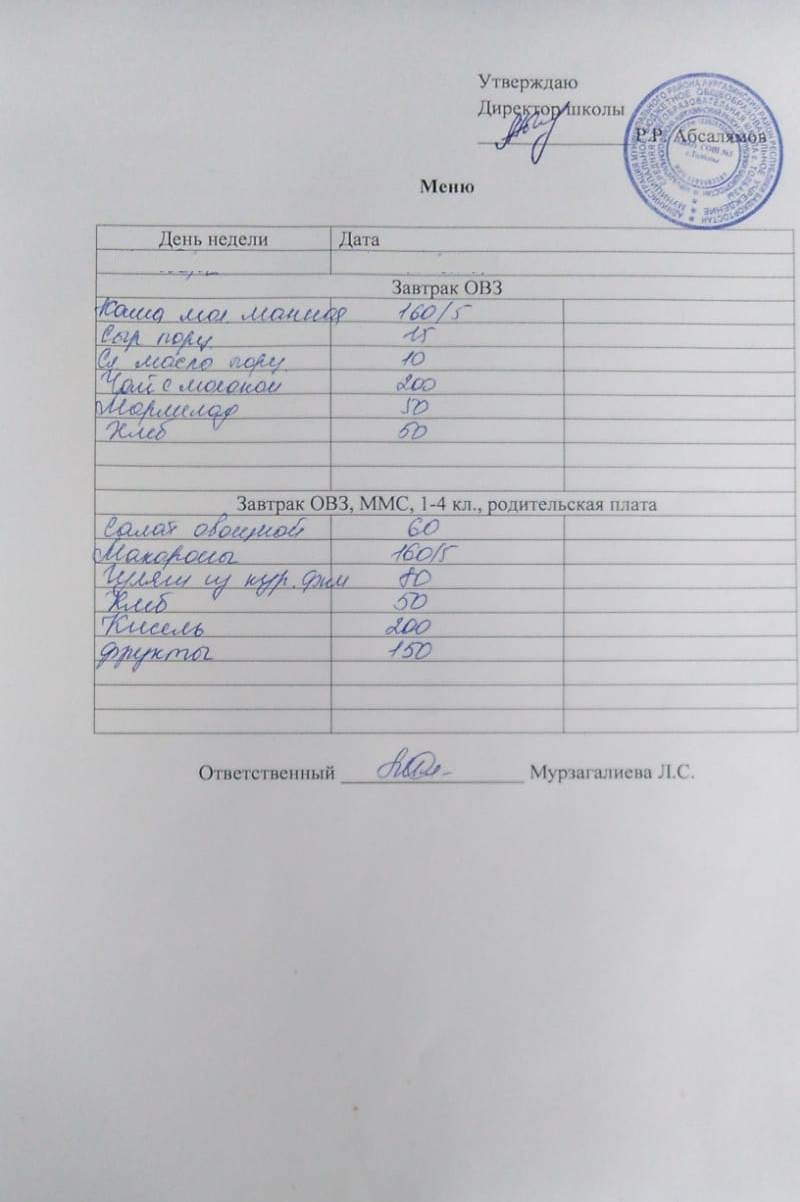 Утверждаю
Директор школы
Р.Р. Абсалямов
Меню
День недели Дата
Завтрак ОВЗ
Каша мол манная 160/5
Сыр порц 15
Сл масло порц 10
Чай с молоком 200
Мармелад 50
Хлеб 50
Завтрак ОВЗ, ММС, 1-4 кл., родительская плата
Салат овощной 60
Макароны 160/5
Гуляш из кур. фил 80
Хлеб 50
Кисель 200
Фрукты 150
Ответственный Мурзагалиева Л.С.